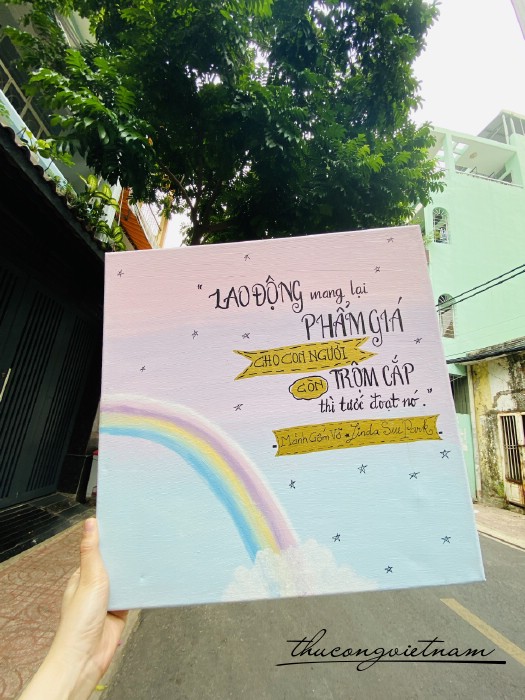 "LAO ĐỘNG mang lại
PHẨM GIÁ
CHO CON NGƯỜI
CÒN TRỘM CẮP
thì tước đoạt nó."
Mảnh Gốm Vỡ - Linda Sue Park
thucongvietnam